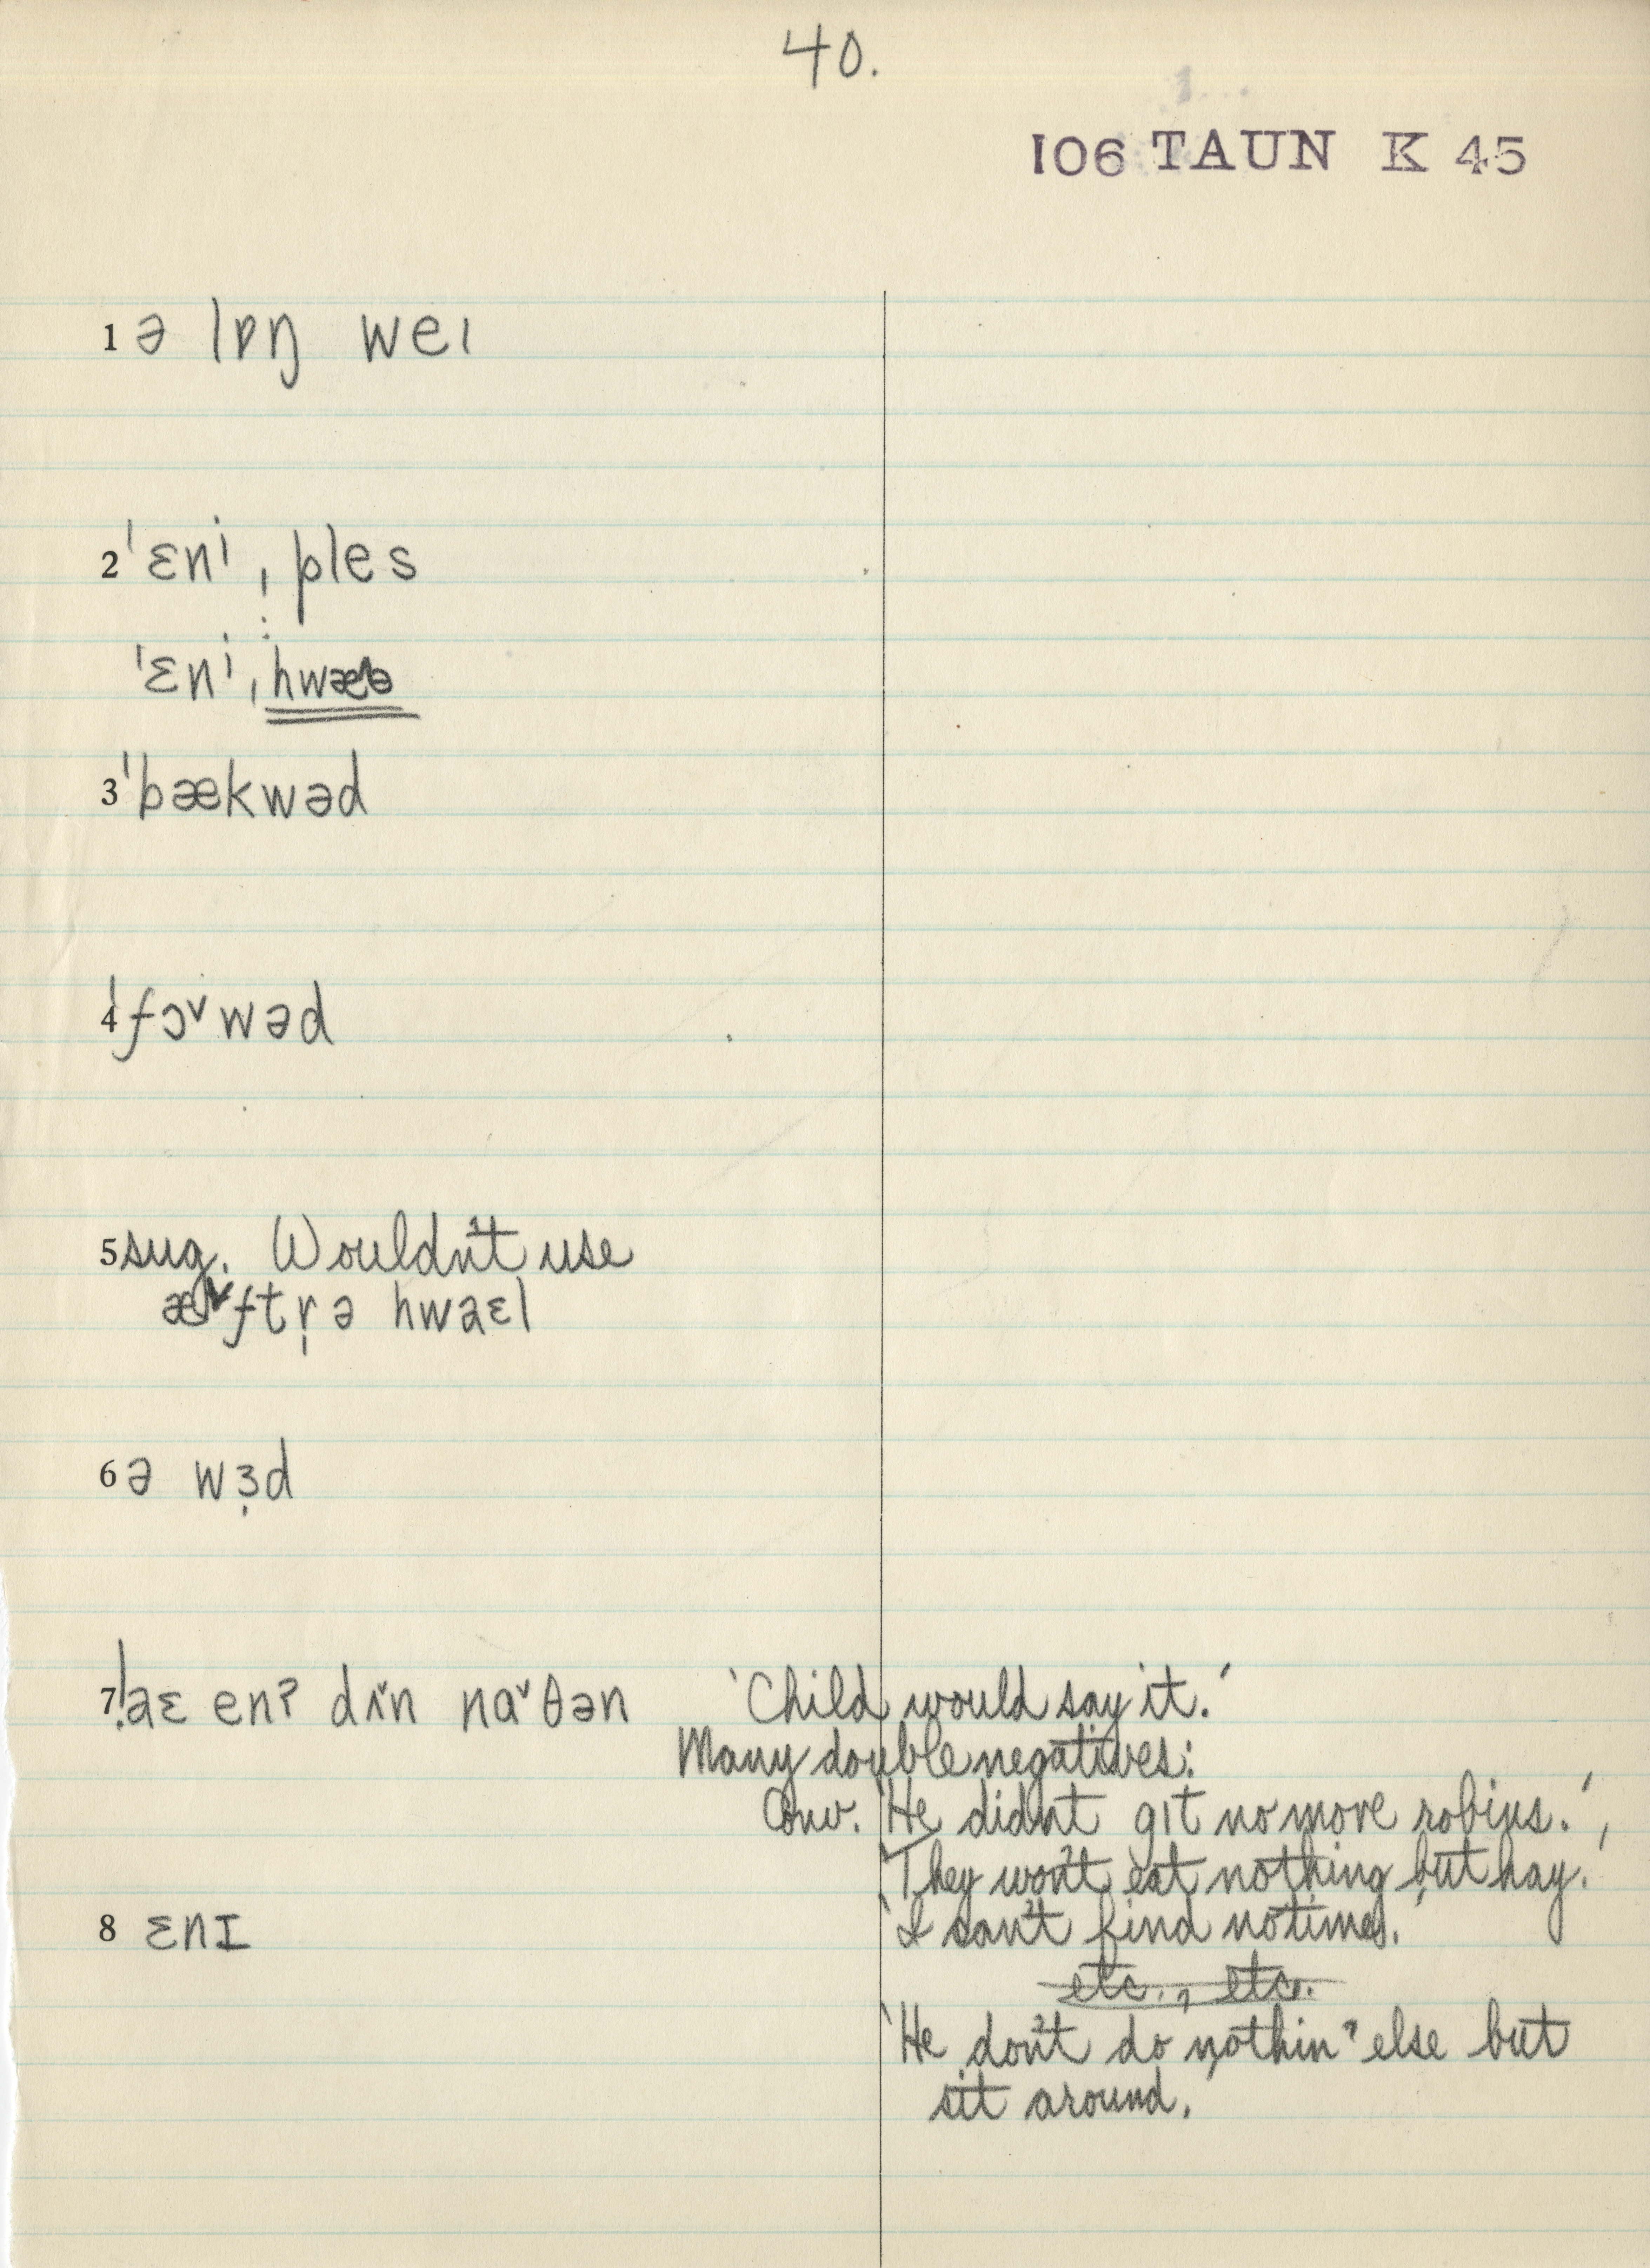 40.
106 TAUN K 45
1 ə lɒŋ weɪ
2 ˈɛnⁱ ˌples
ˈɛnⁱ ˌhwæə
3 ˈbækwəd
4 ˈfɔ˅wəd
5 sug. Wouldn't use
æ˅ftr̩ ə hwaɛl
6 ə wɜ̣d
7 !aɛ enʔ dɪ˅n na˅θən 'Child would say it.'
Many double negatives:
Conv. 'He didn't gɪt no more robins.',
'They won't eat nothing but hay.',
'I can't find no time.'
etc., etc.
'He don't do nothin' else but
sit around.
8 ɛnɪ